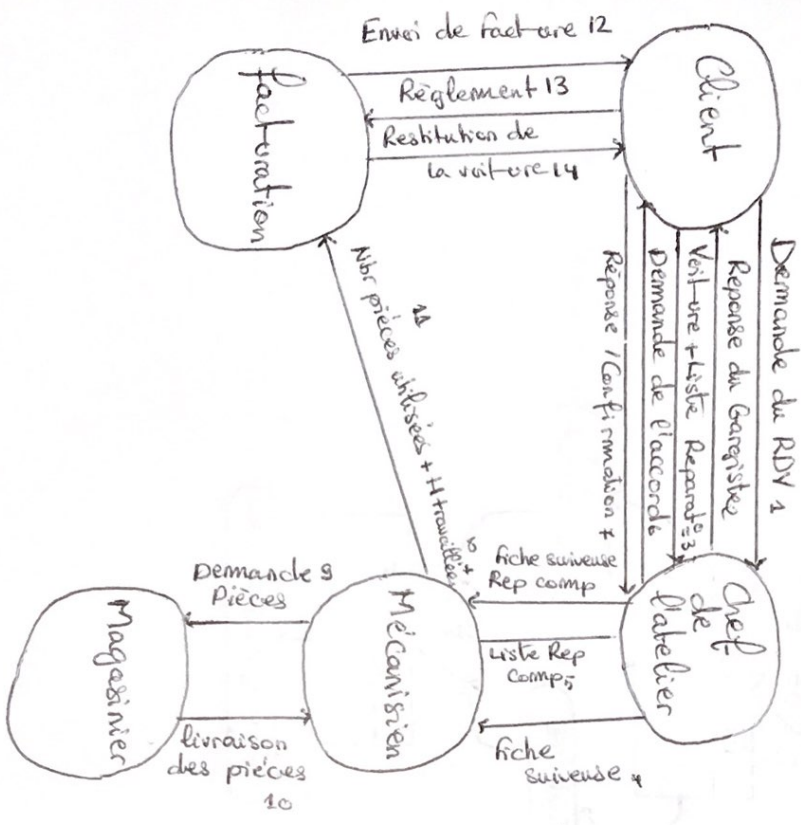 Envoi de facture 12
Règlement 13
Restitution de
la voiture 14
facturation
Client
Demande du RDV 1
Reponse du Garagiste 2
Voiture + Liste Reparat° 3
Demande de l'accord 6
Réponse / Confirmation 7
11
Nbr pièces utilisées + H travaillées
Chef
de
l'atelier
fiche suiveuse
Rep comp
8
Liste Rep
Comp 5
fiche
suiveuse 4
Mécanisien
Demande 9
Pièces
livraison
des pièces
10
Magasinier